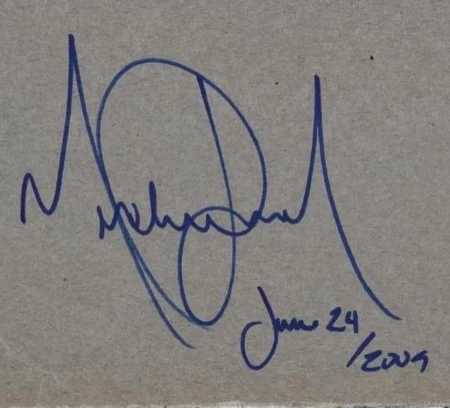 Michael Jackson
June 24
/2009